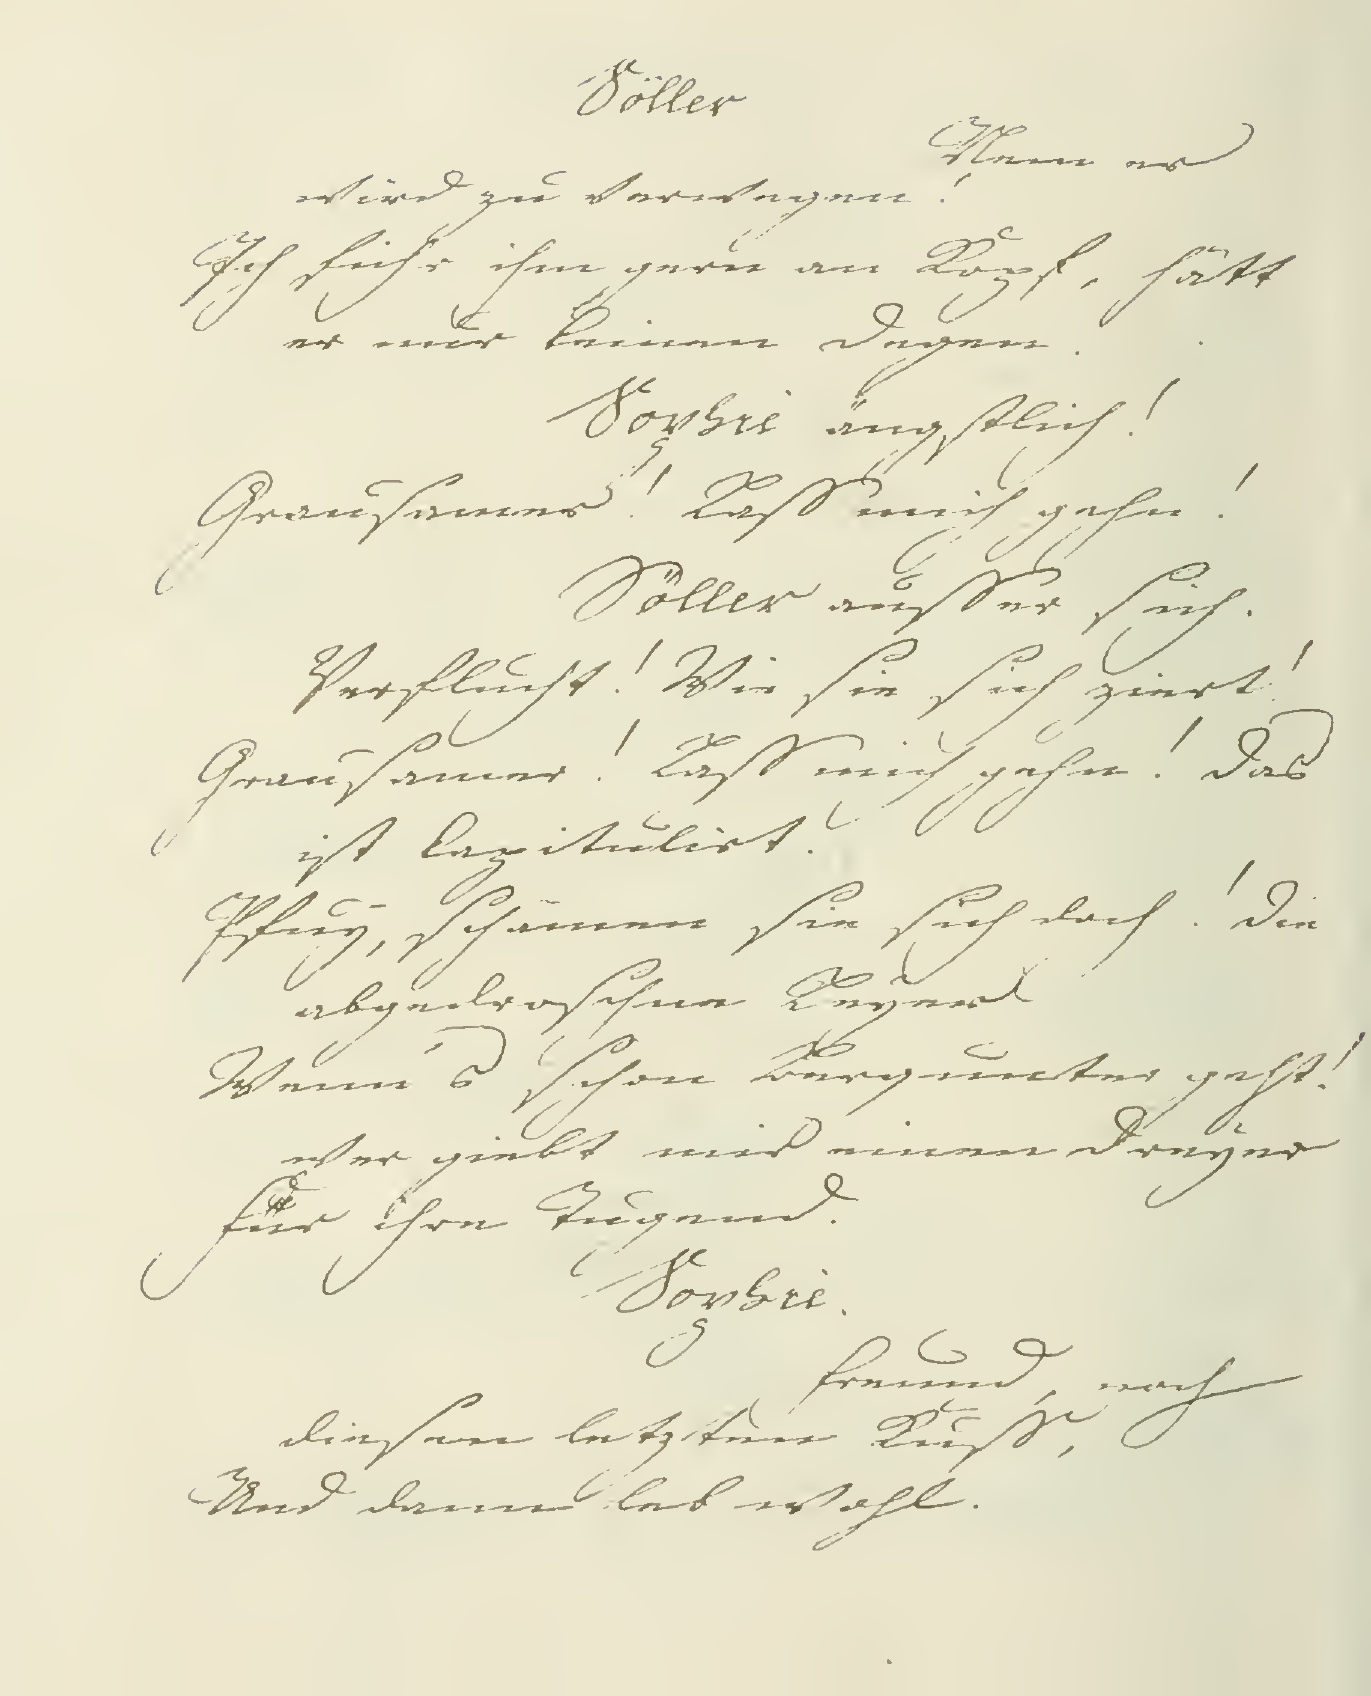 Söller
Nein er
wird zu verwegen!
Ich führ ihm gern an Kopf, hätt
er nur keinen Degen.
Sophie ängstlich!
Grausamer! Lass mich gehn!
Söller ausser sich.
Verflucht! Wie sie sich ziert!
Grausamer! Lass mich gehn! Das
ist kapitulirt.
Pfuy, schämen sie sich doch! Die
abgedroschne Leyer
Wenn's schon bergunter geht!
wer giebt mir einen Dreyer
für ihre Tugend.
Sophie.
Freund, noch
diesen letzten Kuss,
Und dann leb wohl.